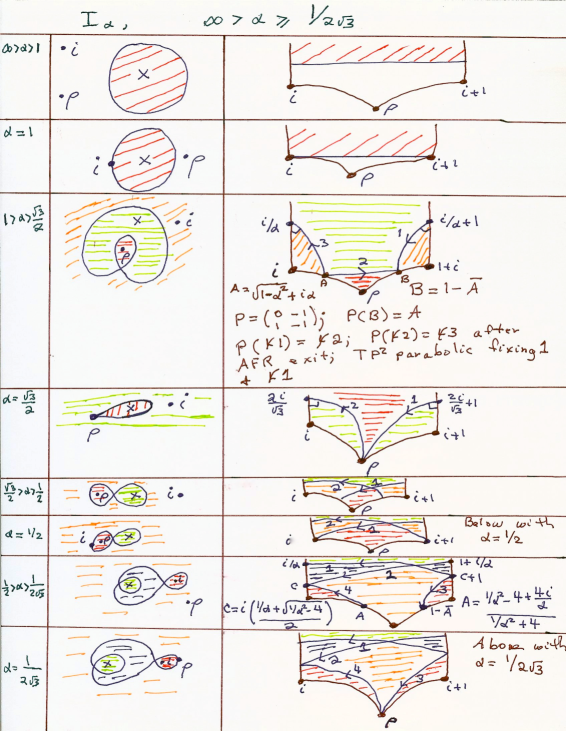 I α, ∞ > α ≥ 1/2√3
∞>α>1
·i
x
·ρ
i
i+1
ρ
α=1
i
x
·ρ
i
i+1
ρ
1>α>√3/2
x
·i
ρ
i/α
i/α+1
3
1
2
i
A
B
1+i
ρ
A=√1-α² + iα
B = 1 - Ā
P = (0 -1
1 -1); P(B) = A
P(K1) = K2; P(K2) = K3 after
AFR exit; TP² parabolic fixing 1
+ K1
α=√3/2
x
·i
ρ
2i/√3
2i/√3+1
2
1
i
i+1
ρ
√3/2>α>1/2
·ρ
x
i·
2
1
i
i+1
ρ
α=1/2
i
ρ
x
2
1
i
i+1
ρ
Below with
α=1/2
1/2>α>1/2√3
x
i
·ρ
i/α
1+i/α
1
2
C
C+1
4
3
C=i(1/α+√1/α²-4
2)
A
1-Ā
ρ
A= 1/α²-4+4i/α
1/α²+4
α=1/2√3
x
i
ρ
1
2
4
3
i
i+1
ρ
Above with
α=1/2√3